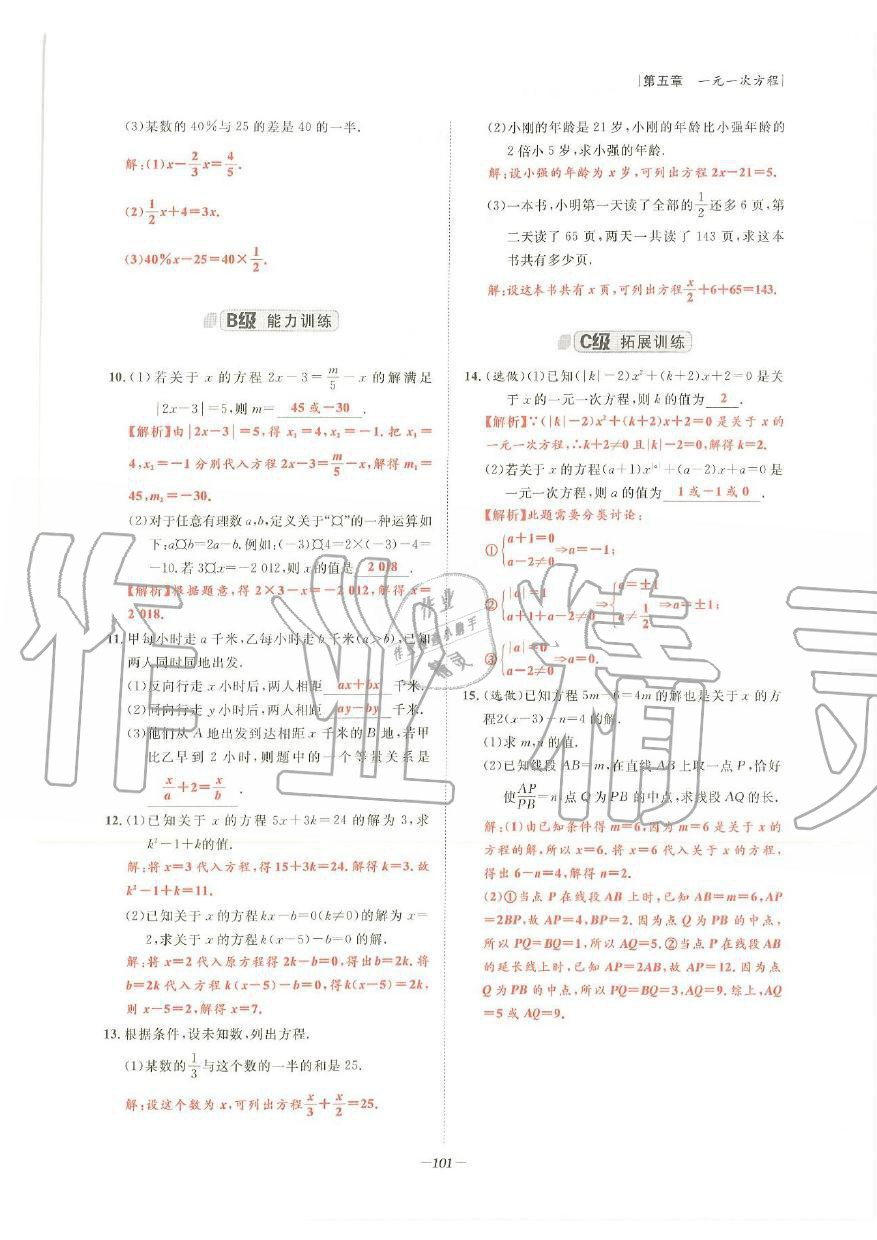 第五章 一元一次方程
(3)某数的40%与25的差是40的一半.
解:(1)x-2/3x=4/5.
(2)1/2x+4=3x.
(3)40%x-25=40×1/2.
B级 能力训练
10.(1)若关于x的方程2x-3=m/5-x的解满足
|2x-3|=5,则m= 45或-30 .
【解析】由|2x-3|=5,得x₁=4,x₂=-1.把x₁=
4,x₂=-1分别代入方程2x-3=m/5-x,解得m₁=
45,m₂=-30.
(2)对于任意有理数a,b,定义关于“¤”的一种运算如
下:a¤b=2a-b.例如:(-3)¤4=2×(-3)-4=
-10.若3¤x=-2 012,则x的值是 2 018 .
【解析】根据题意,得2×3-x=-2 012,解得x=
2 018.
11.甲每小时走a千米,乙每小时走b千米(a>b),已知
两人同时同地出发.
(1)反向行走x小时后,两人相距 ax+bx 千米.
(2)同向行走y小时后,两人相距 ay-by 千米.
(3)他们从A地出发到达相距x千米的B地,若甲
比乙早到2小时,则题中的一个等量关系是
x/a+2=x/b .
12.(1)已知关于x的方程5x+3k=24的解为3,求
k²-1+k的值.
解:将x=3代入方程,得15+3k=24.解得k=3.故
k²-1+k=11.
(2)已知关于x的方程kx-b=0(k≠0)的解为x=
2,求关于x的方程k(x-5)-b=0的解.
解:将x=2代入原方程得2k-b=0,得出b=2k.将
b=2k代入方程k(x-5)-b=0,得k(x-5)=2k,
则x-5=2,解得x=7.
13.根据条件,设未知数,列出方程.
(1)某数的1/3与这个数的一半的和是25.
解:设这个数为x,可列出方程x/3+x/2=25.
(2)小刚的年龄是21岁,小刚的年龄比小强年龄的
2倍小5岁,求小强的年龄.
解:设小强的年龄为x岁,可列出方程2x-21=5.
(3)一本书,小明第一天读了全部的1/2还多6页,第
二天读了65页,两天一共读了143页,求这本
书共有多少页.
解:设这本书共有x页,可列出方程x/2+6+65=143.
C级 拓展训练
14.(选做)(1)已知(|k|-2)x²+(k+2)x+2=0是关
于x的一元一次方程,则k的值为 2 .
【解析】∵(|k|-2)x²+(k+2)x+2=0是关于x的
一元一次方程,∴k+2≠0且|k|-2=0,解得k=2.
(2)若关于x的方程(a+1)x^|a|+(a-2)x+a=0是
一元一次方程,则a的值为 1或-1或0 .
【解析】此题需要分类讨论:
①{a+1=0 a-2≠0⇒a=-1;
②{|a|=1 a+1+a-2≠0⇒{a=±1 a≠1/2⇒a=±1;
③{|a|=0 a-2≠0⇒a=0.
15.(选做)已知方程5m-6=4m的解也是关于x的方
程2(x-3)-n=4的解.
(1)求m,n的值.
(2)已知线段AB=m,在直线AB上取一点P,恰好
使AP/PB=n,点Q为PB的中点,求线段AQ的长.
解:(1)由已知条件得m=6,因为m=6是关于x的
方程的解,所以x=6.将x=6代入关于x的方程,
得出6-n=4,解得n=2.
(2)①当点P在线段AB上时,已知AB=m=6,AP
=2BP,故AP=4,BP=2.因为点Q为PB的中点,
所以PQ=BQ=1,所以AQ=5.②当点P在线段AB
的延长线上时,已知AP=2AB,故AP=12.因为点
Q为PB的中点,所以PQ=BQ=3,AQ=9.综上,AQ
=5或AQ=9.
-101-
作业精灵